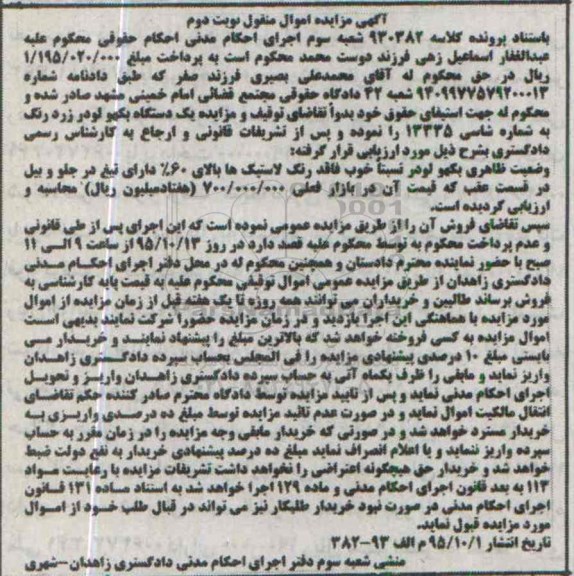 آگهی مزایده اموال منقول نوبت دوم
باستناد پرونده کلاسه ۹۳۰۳۸۲ شعبه سوم اجرای احکام مدنی احکام حقوقی محکوم علیه
عبدالغفار اسماعیل زهی فرزند دوست محمد محکوم است به پرداخت مبلغ ۱/۱۹۵/۰۲۰/۰۰۰
ریال در حق محکوم له آقای محمدعلی بصیری فرزند صفر که طبق دادنامه شماره
۹۴۰۹۹۷۷۵۷۹۲۰۰۰۱۳ شعبه ۴۲ دادگاه حقوقی مجتمع قضائی امام خمینی مشهد صادر شده و
محکوم له جهت استیفای حقوق خود بدواً تقاضای توقیف و مزایده یک دستگاه بکهو لودر زرد رنگ
به شماره شاسی ۱۳۳۳۵ را نموده و پس از تشریفات قانونی و ارجاع به کارشناس رسمی
دادگستری بشرح ذیل مورد ارزیابی قرار گرفته:
وضعیت ظاهری بکهو لودر نسبتاً خوب فاقد رنگ لاستیک ها بالای ۶۰٪ دارای تیغ در جلو و بیل
در قسمت عقب که قیمت آن در بازار فعلی ۷۰۰/۰۰۰/۰۰۰ (هفتادمیلیون ریال) محاسبه و
ارزیابی گردیده است.
سپس تقاضای فروش آن را از طریق مزایده عمومی نموده است که این اجرای پس از طی قانونی
و عدم پرداخت محکوم به توسط محکوم علیه قصد دارد در روز ۹۵/۱۰/۱۳ از ساعت ۹ الی ۱۱
صبح با حضور نماینده محترم دادستان و همچنین محکوم له در محل دفتر اجرای احکام مدنی
دادگستری زاهدان از طریق مزایده عمومی اموال توقیفی محکوم علیه به قیمت پایه کارشناسی به
فروش برساند طالبین و خریداران می توانند همه روزه تا یک هفته قبل از زمان مزایده از اموال
مورد مزایده با هماهنگی این اجرا بازدید و در زمان مزایده حضوراً شرکت نمایند بدیهی است
اموال مزایده به کسی فروخته خواهد شد که بالاترین مبلغ را پیشنهاد نماینـد و خریـدار مـی
بایستی مبلغ ۱۰ درصدی پیشنهادی مزایده را فی المجلس بحساب سپرده دادگستری زاهـدان
واریز نماید و مابقی را ظرف یکماه آتی به حساب سپرده دادگستری زاهـدان واریـز و تحویـل
اجرای احکام مدنی نماید و پس از تایید مزایده توسط دادگاه محترم صادر کننده حکم تقاضـای
انتقال مالکیت اموال نماید و در صورت عدم تائید مزایده توسط مبلغ ده درصـدی واریـزی بـه
خریدار مسترد خواهد شد و در صورتی که خریدار مابقی وجه مزایده را در زمان مقرر به حساب
سپرده واریز ننماید و یا اعلام انصراف نماید مبلغ ده درصد پیشنهادی خریدار به نفع دولت ضبط
خواهد شد و خریدار حق هیچگونه اعتراضی را نخواهد داشت تشریفات مزایده با رعایـت مـواد
۱۱۳ به بعد قانون اجرای احکام مدنی و ماده ۱۲۹ اجرا خواهد شد به استناد مـاده ۱۳۱ قـانون
اجرای احکام مدنی در صورت نبود خریدار طلبکار نیز می تواند در قبال طلب خـود از امـوال
مورد مزایده قبول نماید.
تاریخ انتشار ۹۵/۱۰/۱ م الف ۹۳-۳۸۲
منشی شعبه سوم دفتر اجرای احکام مدنی دادگستری زاهدان-شهری